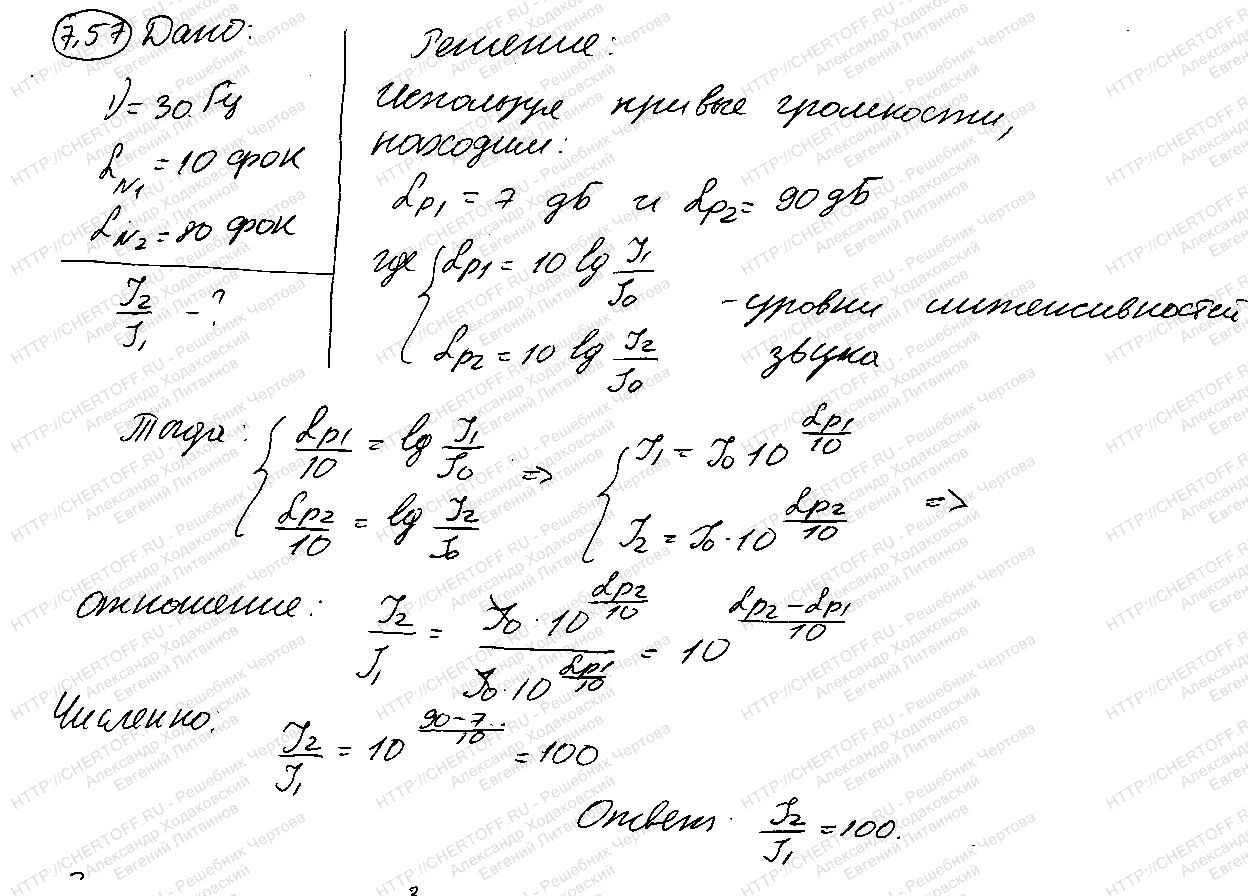 7.57 Дано:
ν = 30 Гц
L_N1 = 10 фон
L_N2 = 80 фон
I2/I1 - ?
Решение:
Используя кривые громкости,
находим:
Lp1 = 7 дБ и Lp2 = 90 дБ
где { Lp1 = 10 lg I1/I0
Lp2 = 10 lg I2/I0
- уровни интенсивностей
звука
Тогда: { Lp1/10 = lg I1/I0 => { I1 = I0 10^(Lp1/10)
Lp2/10 = lg I2/I0 I2 = I0 · 10^(Lp2/10) =>
отношение: I2/I1 = I0 · 10^(Lp2/10) / I0 · 10^(Lp1/10) = 10^((Lp2 - Lp1)/10)
Численно: I2/I1 = 10^((90-7..)/10) = 100
Ответ. I2/I1 = 100.
HTTP://CHERTOFF.RU - Решебник Чертова
Александр Ходаковский
Евгений Литвинов